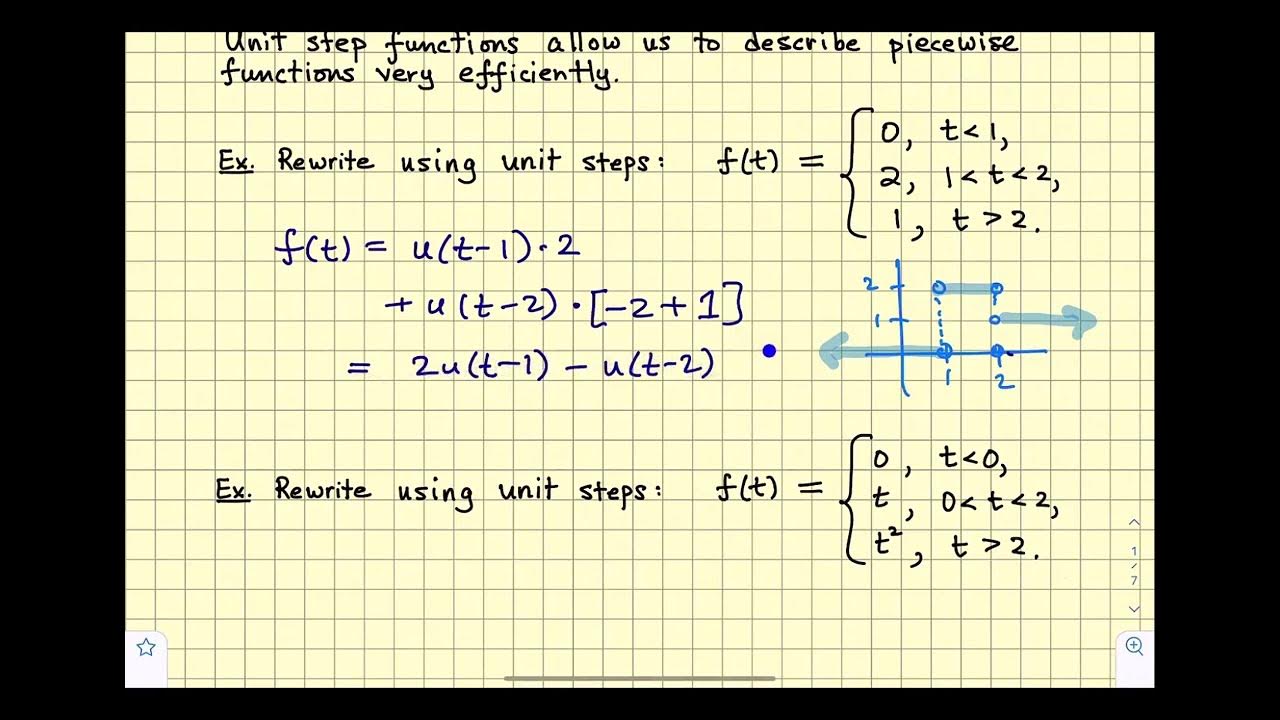 Unit step functions allow us to describe piecewise
functions very efficiently.
Ex. Rewrite using unit steps: f(t) = { 0, t < 1,
2, 1 < t < 2,
1, t > 2.
f(t) = u(t-1)·2
+ u(t-2)·[-2+1]
= 2u(t-1) - u(t-2)
2
1
1 2
Ex. Rewrite using unit steps: f(t) = { 0, t < 0,
t, 0 < t < 2,
t², t > 2.
1
/
7